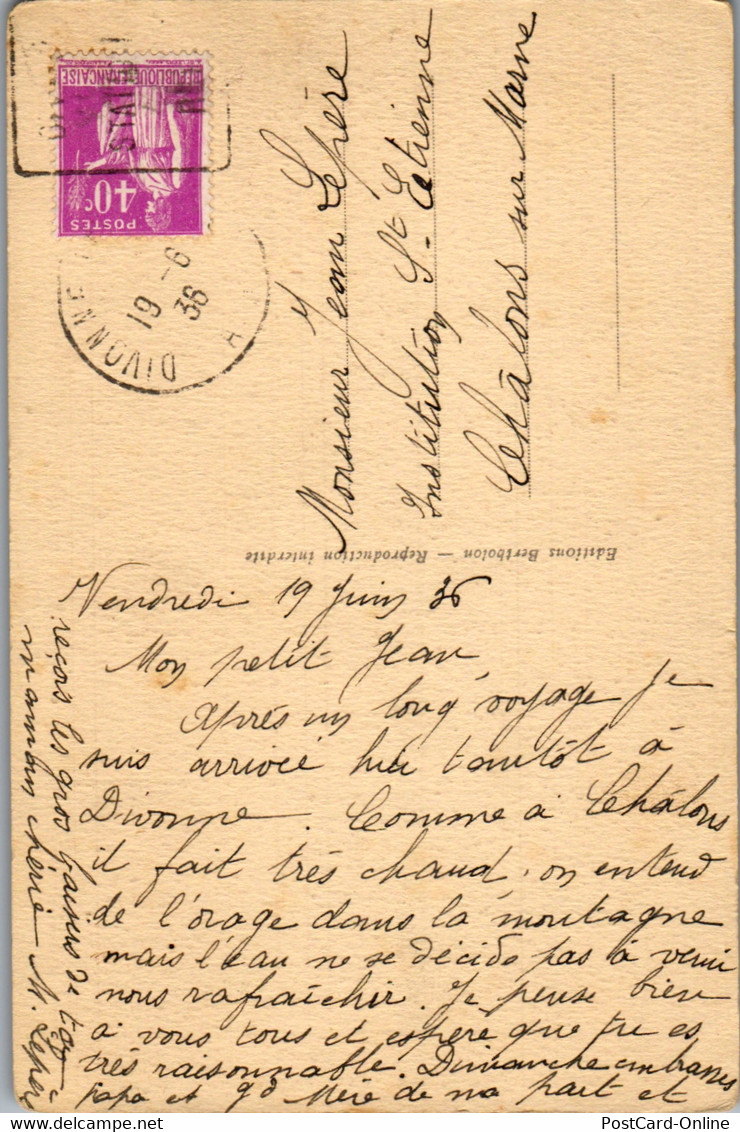 RÉPUBLIQUE FRANÇAISE
40c
POSTES
DIVONNE
19 -6
36
A
STAT
Monsieur Jean Lepère
Institution St Etienne
Châlons sur Marne
Editions Bertholon — Reproduction interdite
Vendredi 19 Juin 36
Mon petit Jean,
Après un long voyage je
suis arrivée hier tantôt à
Divonne. Comme à Châlons
il fait très chaud, on entend
de l'orage dans la montagne
mais l'eau ne se décide pas à venir
nous rafraîchir. Je pense bien
à vous tous et espère que tu es
très raisonnable. Dimanche embrasses
papa et gd Mère de ma part et
reçois les gros baisers de ta
maman chérie M. Lepère
PostCard-Online